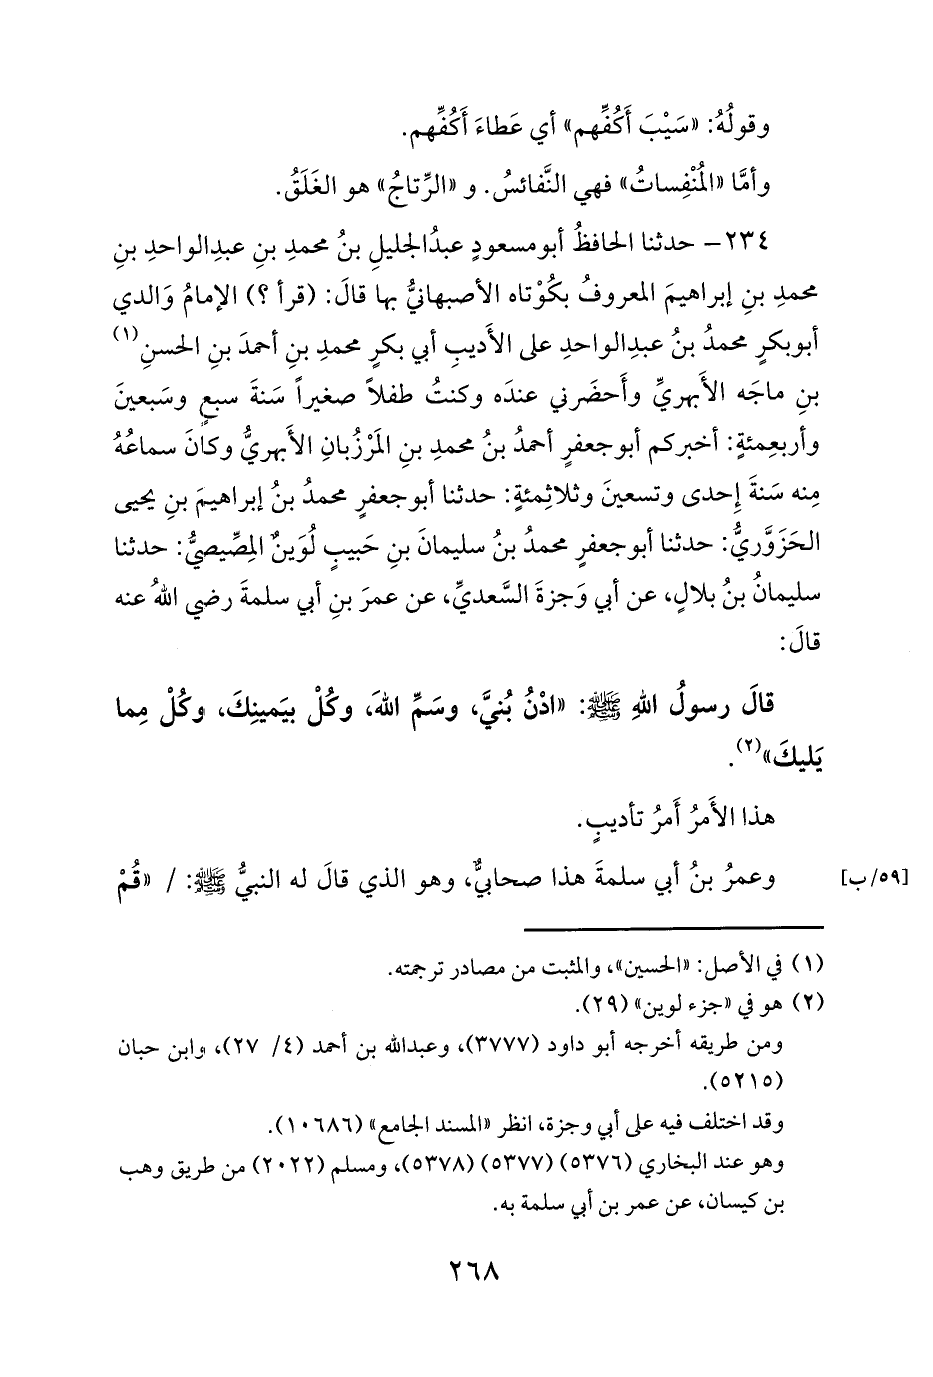 وقولُهُ: «سَيْبَ أَكُفِّهم» أي عَطاءَ أَكُفِّهم.
وأمَّا «المُنْفِساتُ» فهي النَّفائسُ. و «الرِّتاجُ» هو الغَلَقُ.
٢٣٤- حدثنا الحافظُ أبومسعودٍ عبدُالجليلِ بنُ محمدِ بنِ عبدِالواحدِ بنِ
محمدِ بنِ إبراهيمَ المعروفُ بكُوْتاه الأصبهانيُّ بها قالَ: (قرأ ؟) الإمامُ وَالدي
أبوبكرٍ محمدُ بنُ عبدِالواحدِ على الأَديبِ أبي بكرٍ محمدِ بنِ أحمدَ بنِ الحسنِ(١)
بنِ ماجَه الأَبهريِّ وأَحضَرني عندَه وكنتُ طفلاً صغيراً سَنةَ سبعٍ وسَبعينَ
وأربعِمئةٍ: أخبركم أبوجعفرٍ أحمدُ بنُ محمدِ بنِ المَرْزُبانِ الأَبهريُّ وكانَ سماعُهُ
مِنه سَنةَ إِحدى وتسعينَ وثلاثِمئةٍ: حدثنا أبوجعفرٍ محمدُ بنُ إبراهيمَ بنِ يحيى
الحَزَوَّريُّ: حدثنا أبوجعفرٍ محمدُ بنُ سليمانَ بنِ حَبيبٍ لُوَينٌ المِصِّيصيُّ: حدثنا
سليمانُ بنُ بلالٍ، عن أبي وَجزةَ السَّعديِّ، عن عمرَ بنِ أبي سلمةَ رضي اللهُ عنه
قالَ:
قالَ رسولُ اللهِ ﷺ: «ادْنُ بُنيَّ، وسَمِّ اللهَ، وكُلْ بيَمينِكَ، وكُلْ مِما
يَليكَ»(٢).
هذا الأَمرُ أَمرُ تأديبٍ.
وعمرُ بنُ أبي سلمةَ هذا صحابيٌّ، وهو الذي قالَ له النبيُّ ﷺ: / «قُمْ [٥٩/ب]
(١) في الأصل: «الحسين»، والمثبت من مصادر ترجمته.
(٢) هو في «جزء لوين» (٢٩).
ومن طريقه أخرجه أبو داود (٣٧٧٧)، وعبدالله بن أحمد (٤/ ٢٧)، وابن حبان
(٥٢١٥).
وقد اختلف فيه على أبي وجزة، انظر «المسند الجامع» (١٠٦٨٦).
وهو عند البخاري (٥٣٧٦) (٥٣٧٧) (٥٣٧٨)، ومسلم (٢٠٢٢) من طريق وهب
بن كيسان، عن عمر بن أبي سلمة به.
٢٦٨